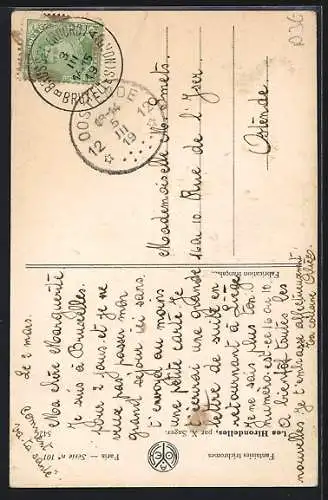 Le 2 mars.
Ma chère Marguerite
Je suis à Bruxelles
pour 2 jours et je ne
veux pas passer mon
grand séjour ici sans
t'envoyer au moins
une petite carte. Je
t'écrirai une grande
lettre de suite en
retournant à Liège
Je ne sais plus ton
numéro: est-ce 16 ou 10.
A bientôt toutes les
nouvelles je t'embrasse affectueusement
Comment
va ta santé?
Mademoiselle M.
16 ou 10 Rue de l'Yser
Ostende.
Fantaisies trichromes
Les Hirondelles, par X. Sager.
Paris — Série n° 101
Fabrication française
BRUXELLES
BRUSSEL
OOSTENDE
12 III 19
036